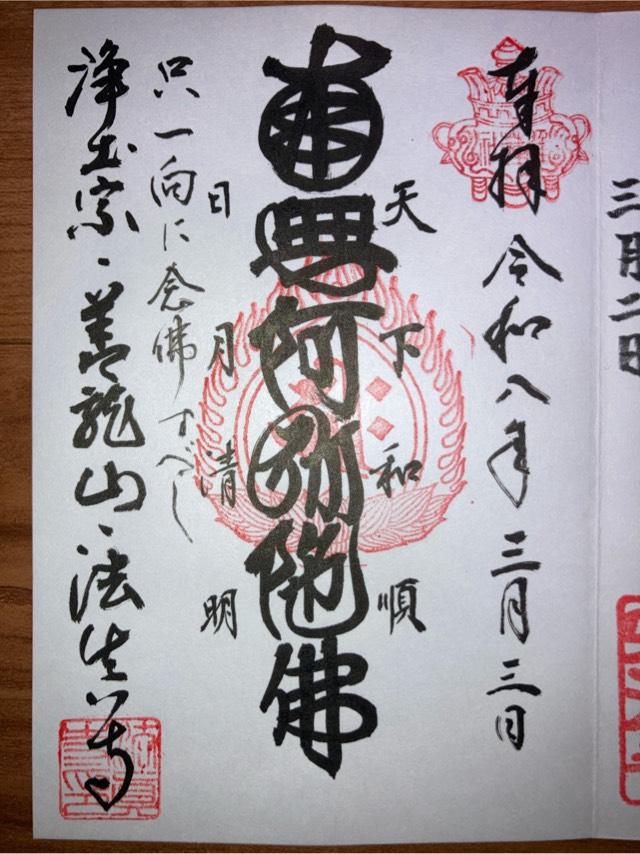 三月二日
奉拝 令和八年三月三日
天下和順
南無阿弥陀佛
日月清明
只一向に念佛すべし
浄土宗、善龍山、法生寺